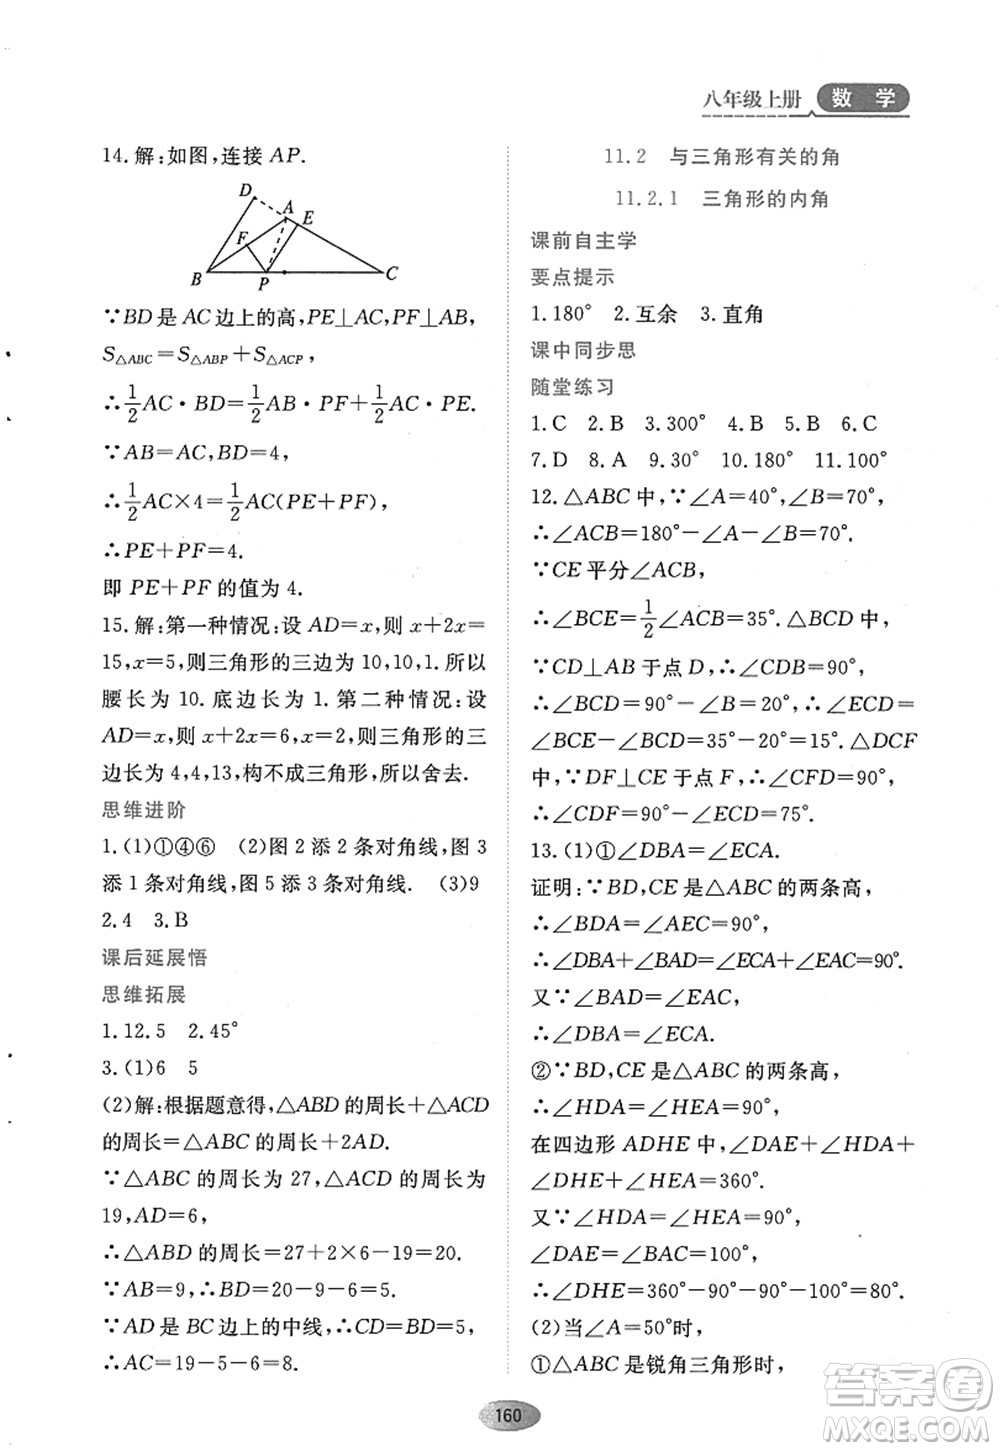 八年级上册 数学
14.解:如图,连接 AP.
D
A
E
F
B
P
C
∵BD是AC边上的高,PE⊥AC,PF⊥AB,
S△ABC=S△ABP+S△ACP,
∴1/2AC·BD=1/2AB·PF+1/2AC·PE.
∵AB=AC,BD=4,
∴1/2AC×4=1/2AC(PE+PF),
∴PE+PF=4.
即 PE+PF 的值为 4.
15.解:第一种情况:设 AD=x,则 x+2x=
15,x=5,则三角形的三边为 10,10,1.所以
腰长为 10.底边长为 1.第二种情况:设
AD=x,则 x+2x=6,x=2,则三角形的三
边长为 4,4,13,构不成三角形,所以舍去.
思维进阶
1.(1)①④⑥ (2)图 2 添 2 条对角线,图 3
添 1 条对角线,图 5 添 3 条对角线. (3)9
2.4 3.B
课后延展悟
思维拓展
1.12.5 2.45°
3.(1)6 5
(2)解:根据题意得,△ABD 的周长+△ACD
的周长=△ABC 的周长+2AD.
∵△ABC 的周长为 27,△ACD 的周长为
19,AD=6,
∴△ABD 的周长=27+2×6-19=20.
∵AB=9,∴BD=20-9-6=5.
∵AD 是 BC 边上的中线,∴CD=BD=5,
∴AC=19-5-6=8.
11.2 与三角形有关的角
11.2.1 三角形的内角
课前自主学
要点提示
1.180° 2.互余 3.直角
课中同步思
随堂练习
1.C 2.B 3.300° 4.B 5.B 6.C
7.D 8.A 9.30° 10.180° 11.100°
12.△ABC 中,∵∠A=40°,∠B=70°,
∴∠ACB=180°-∠A-∠B=70°.
∵CE 平分∠ACB,
∴∠BCE=1/2∠ACB=35°.△BCD 中,
∵CD⊥AB 于点 D,∴∠CDB=90°,
∴∠BCD=90°-∠B=20°,∴∠ECD=
∠BCE-∠BCD=35°-20°=15°.△DCF
中,∵DF⊥CE 于点 F,∴∠DFC=90°,
∴∠CDF=90°-∠ECD=75°.
13.(1)①∠DBA=∠ECA.
证明:∵BD,CE 是△ABC 的两条高,
∴∠BDA=∠AEC=90°,
∴∠DBA+∠BAD=∠ECA+∠EAC=90°.
又∵∠BAD=∠EAC,
∴∠DBA=∠ECA.
②∵BD,CE 是△ABC 的两条高,
∴∠HDA=∠HEA=90°,
在四边形 ADHE 中,∠DAE+∠HDA+
∠DHE+∠HEA=360°.
又∵∠HDA=∠HEA=90°,
∠DAE=∠BAC=90°,
∴∠DHE=360°-90°-90°-90°=90°.
(2)当∠A=50°时,
①△ABC 是锐角三角形时,
160
答案圈
MXQE.COM